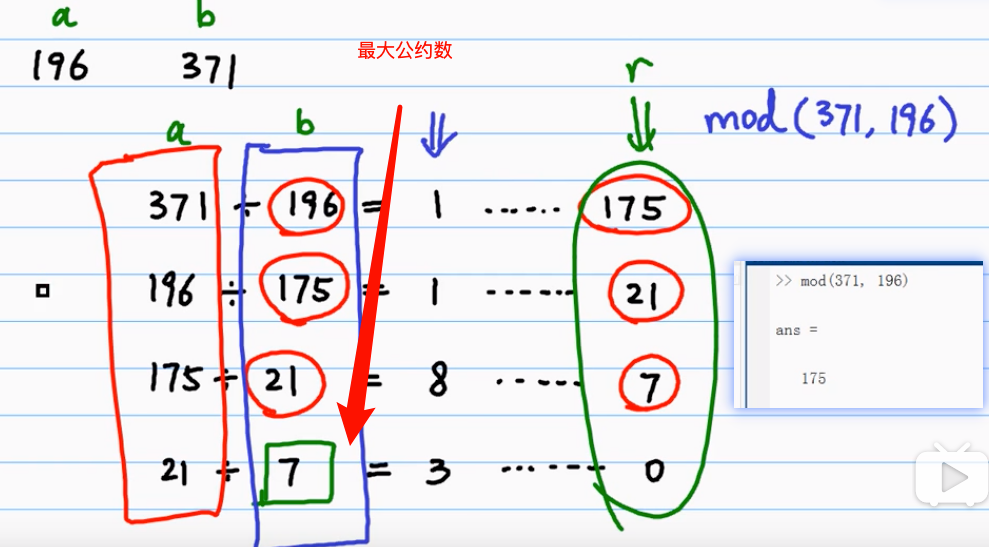 a b
196 371
最大公约数
a b ⇓ r
⇓
mod(371, 196)
371 ÷ 196 = 1 ...... 175
196 ÷ 175 = 1 ------ 21
175 ÷ 21 = 8 ------ 7
21 ÷ 7 = 3 ------ 0
>> mod(371, 196)
ans =
175